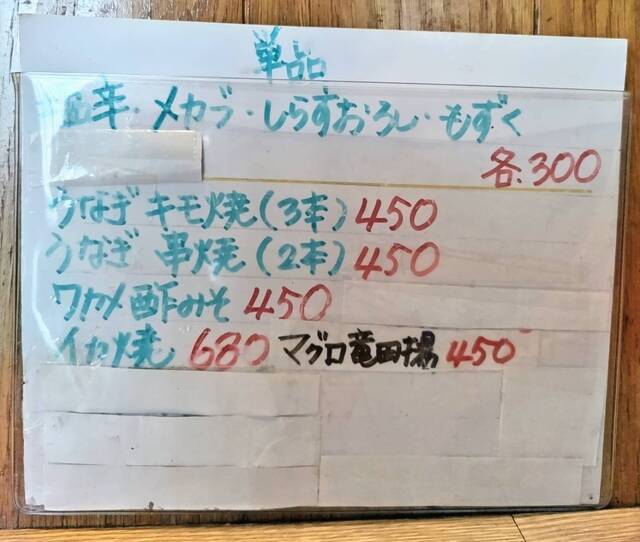 単品
塩辛・メカブ・しらすおろし・もずく
各.300
うなぎ キモ焼(3本)450
うなぎ 串焼(2本)450
ワカメ酢みそ 450
イカ焼 680 マグロ竜田揚 450